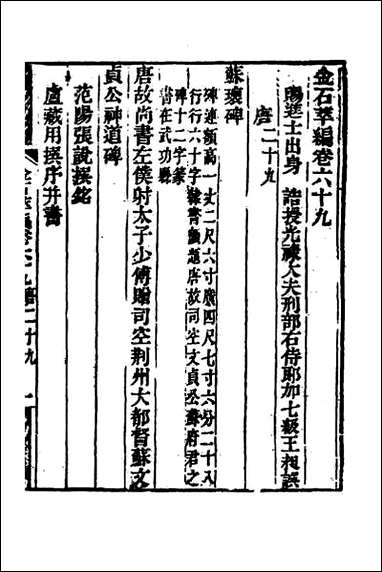 金石萃編卷六十九
賜進士出身 誥授光祿大夫刑部右侍郎加七級王昶譔
唐二十九
蘇瓌碑
碑連額高一丈二尺六寸廣四尺七寸六分二十八
行行六十字隸書額題唐故司空文貞公蘇府君之
碑十二字篆
書在武功縣
唐故尚書左僕射太子少傅贈司空荆州大都督蘇文
貞公神道碑
范陽張說撰銘
盧藏用撰序并書
金石萃編卷六十九 唐二十九 一